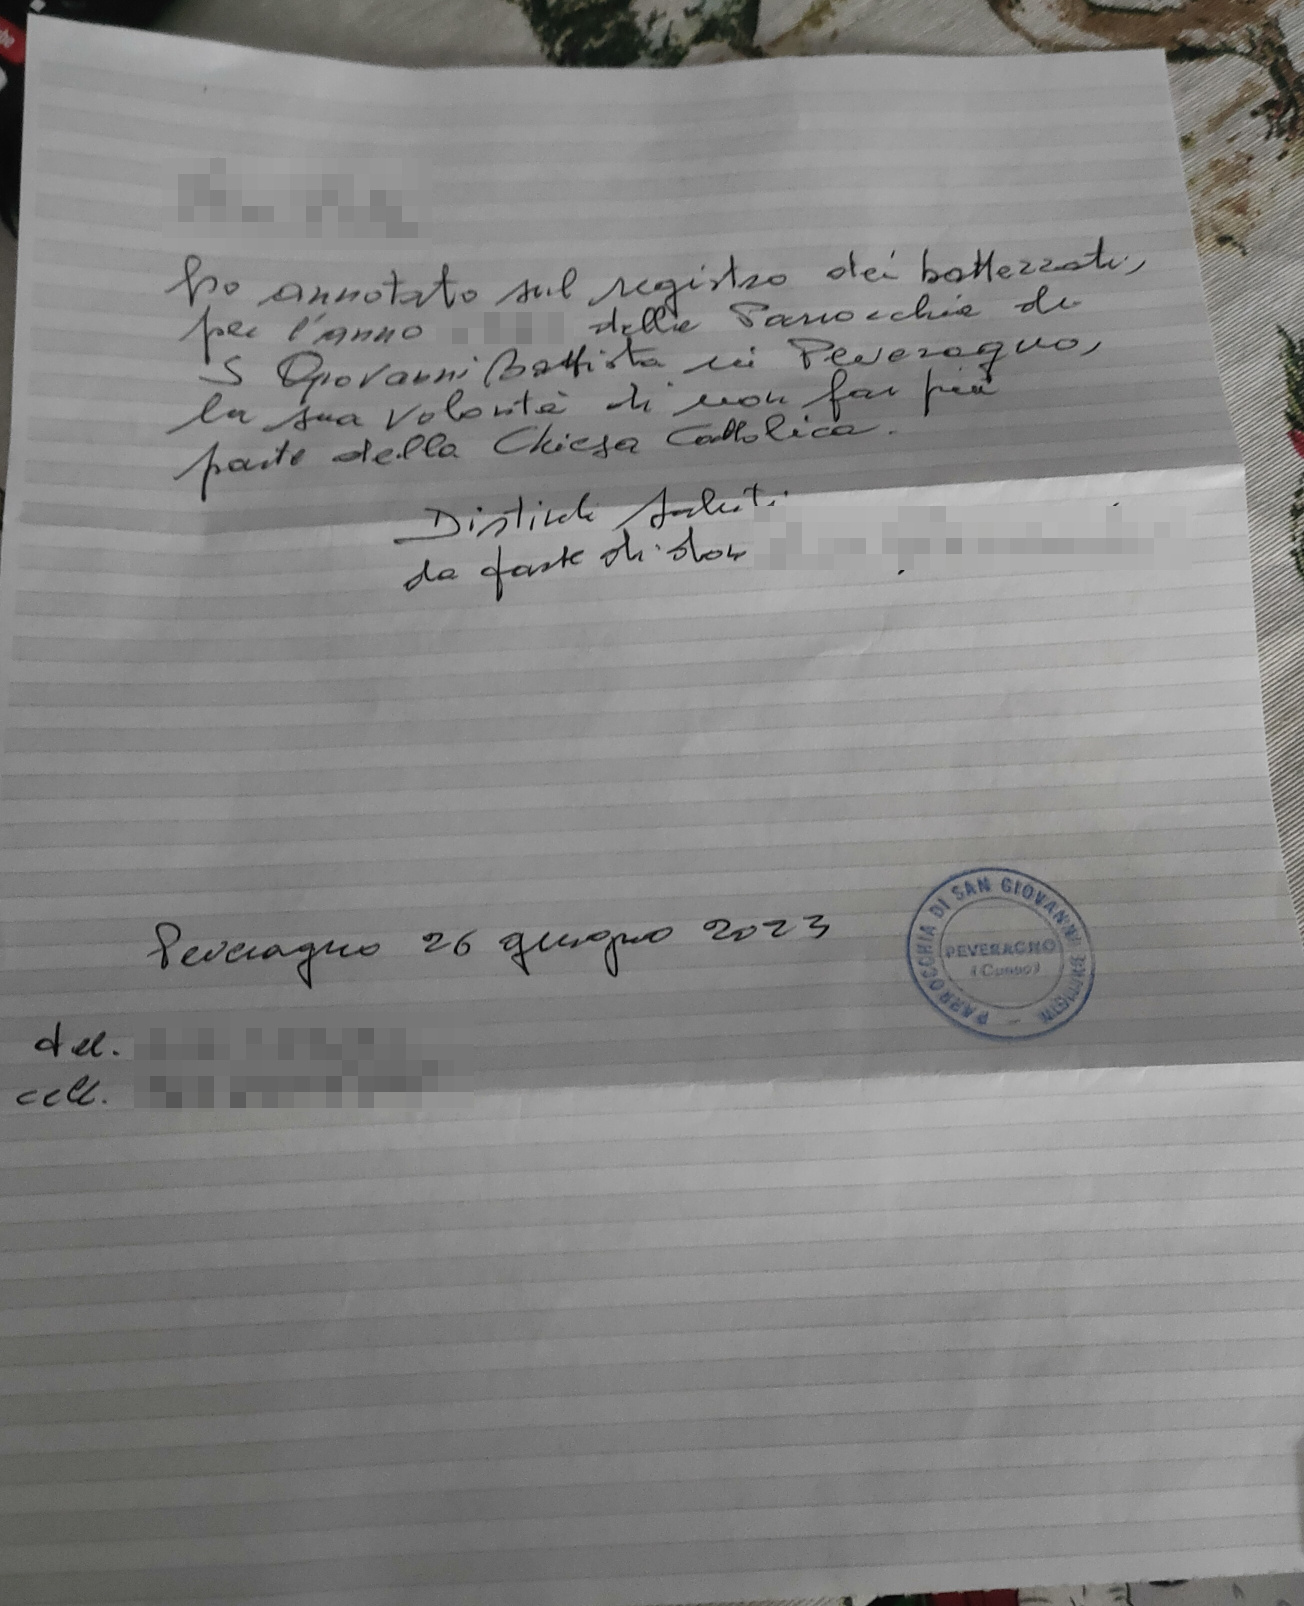 ho annotato sul registro dei battezzati,
per l'anno della Parrocchia di
S Giovanni Battista in Peveragno,
la sua volontà di non far più
parte della Chiesa Cattolica.
Distinti saluti
da parte di don
Peveragno 26 giugno 2023
PARROCCHIA DI SAN GIOVANNI BATTISTA
PEVERAGNO
(Cuneo)
tel.
cell.